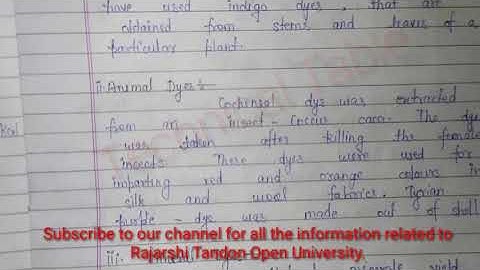 have used indigo dyes, that are
obtained from stems and leaves of a
particular plant.
ii. Animal Dyes :-
Cochineal dye was extracted
from an insect - Coccus caca. The dye
was taken after killing the female
insects. These dyes were used for
imparting red and orange colours in
silk and wool fabrics. Tyrian
purple - dye was made out of shell
Subscribe to our channel for all the information related to
Rajarshi Tandon Open University.
iii.